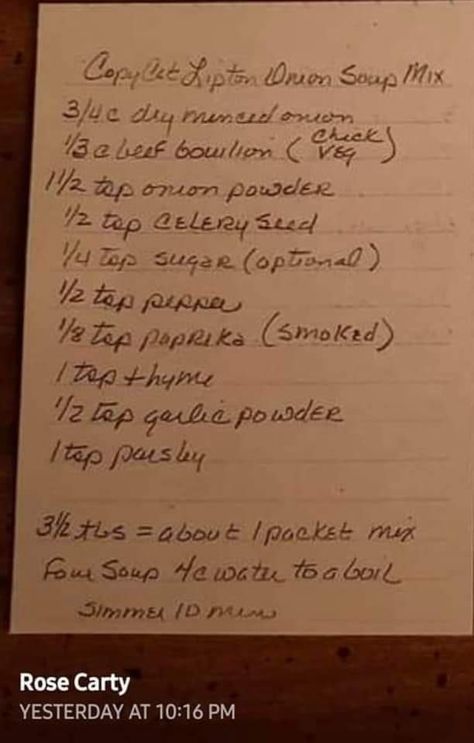 CopyCat Lipton Onion Soup Mix
3/4 c dry minced onion
1/3 c beef boullion (Chick Veg)
1 1/2 tsp onion powder
1/2 tsp CELERY Seed
1/4 tsp sugar (optional)
1/2 tsp pepper
1/8 tsp paprika (smoked)
1 tsp thyme
1/2 tsp garlic powder
1 tsp parsley
3 1/2 tbs = about 1 packet mix
For Soup 4 c water to a boil
Simmer 10 min
Rose Carty
YESTERDAY AT 10:16 PM